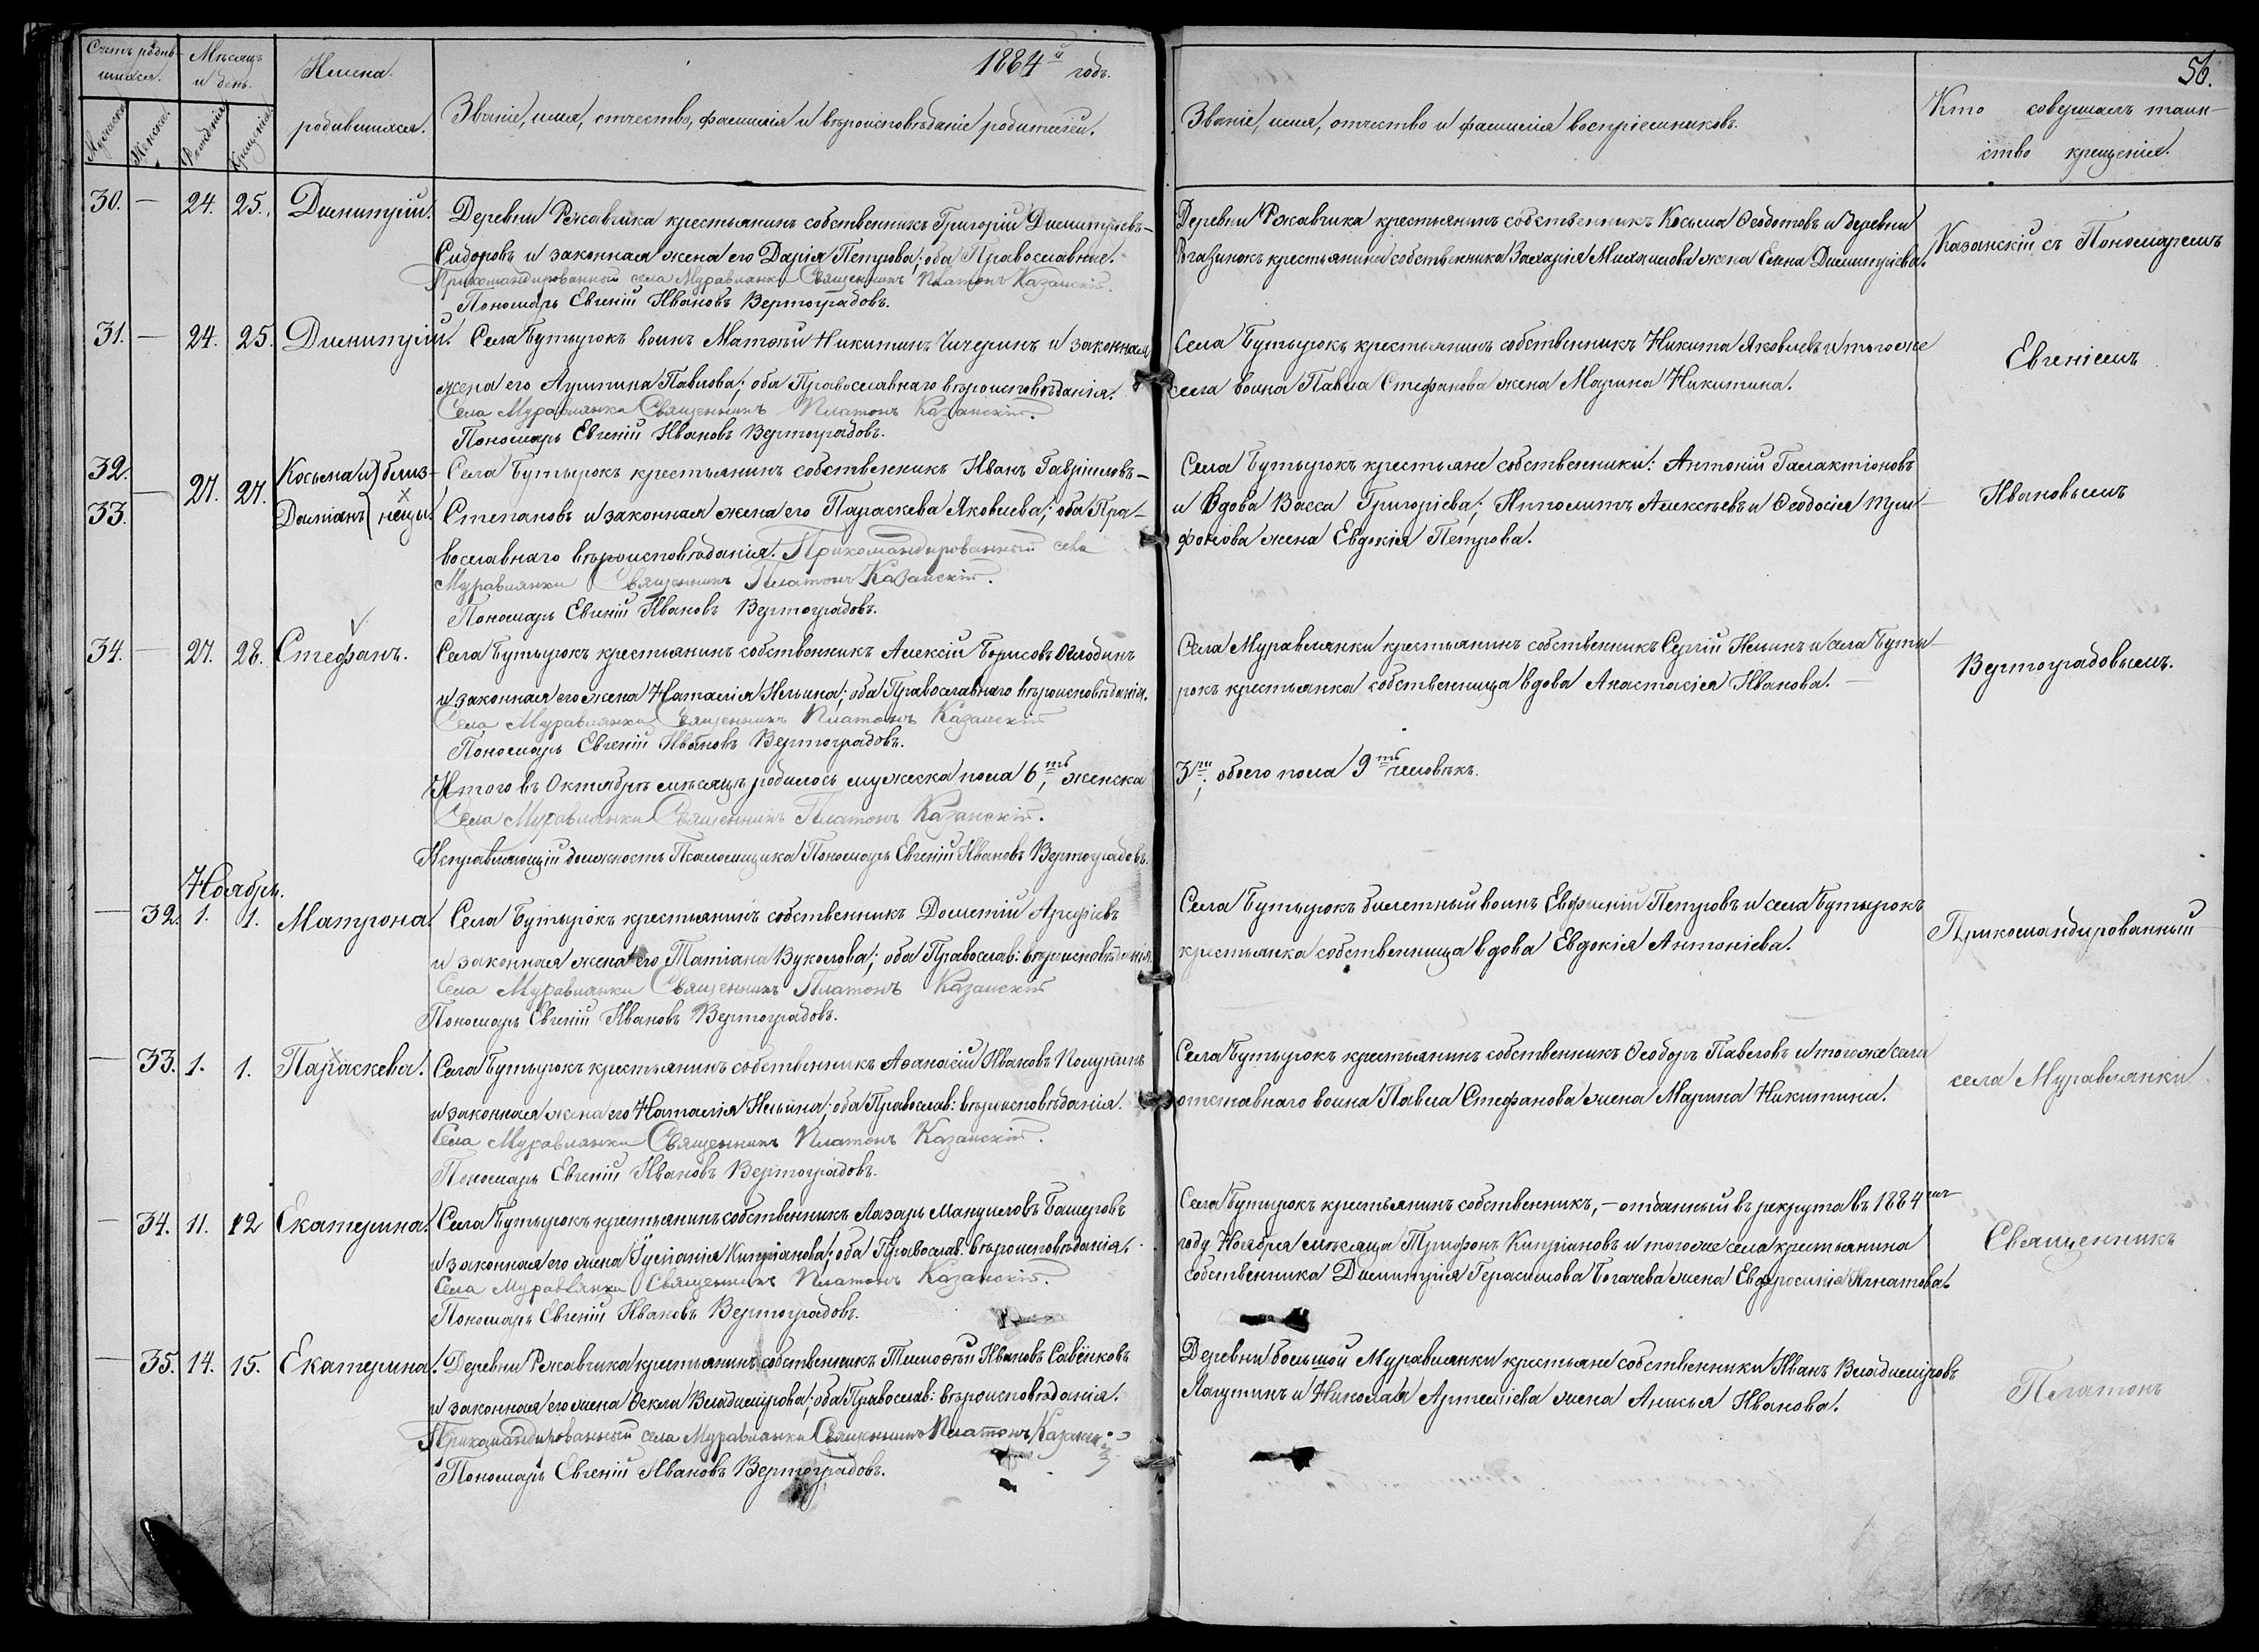 Счетъ родив-
шихся.
Мѣсяцъ
и день.
Имена
родившихся.
1884й годъ.
Званіе, имя, отчество, фамилія и вѣроисповѣданіе родителей.
Мужеска.
Женска.
Рожденія
Крещенія.
30. — 24. 25. Димитрій. Деревни Ржавчика крестьянинъ собственникъ Григорій Димитріевъ-
Сидоровъ и законная жена его Дарія Петрова; оба Православные.
Прикомандированный села Муравлянки Священникъ Платонъ Казанскій.
Пономарь Евгеній Ивановъ Вертоградовъ.
31. — 24. 25. Димитрій. Села Бутырокъ воинъ Матѳѣй Никитинъ Чичеринъ и законная
жена его Акилина Павлова; оба Православнаго вѣроисповѣданія.
Села Муравлянки Священникъ Платонъ Казанскій.
Пономарь Евгеній Ивановъ Вертоградовъ.
32. — 27. 27. Косьма и близ- Села Бутырокъ крестьянинъ собственникъ Иванъ Гавріиловъ-
33. Даміанъ нецы. Степановъ и законная жена его Параскева Яковлева; оба Пра-
вославнаго вѣроисповѣданія. Прикомандированный села
Муравлянки Священникъ Платонъ Казанскій.
Пономарь Евгеній Ивановъ Вертоградовъ.
34. — 27. 28. Стефанъ. Села Бутырокъ крестьянинъ собственникъ Алексій Борисовъ
и законная его жена Наталія Ильина; оба Православнаго вѣроисповѣданія.
Села Муравлянки Священникъ Платонъ Казанскій
Пономарь Евгеній Ивановъ Вертоградовъ.
Итого въ Октябрѣ мѣсяцѣ родилось мужеска пола 6ть, женска
Села Муравлянки Священникъ Платонъ Казанскій.
Исправляющій должность Псаломщика Пономарь Евгеній Ивановъ Вертоградовъ.
Ноябрь.
— 32. 1. 1. Матрона. Села Бутырокъ крестьянинъ собственникъ Дометій Арефіевъ
и законная жена его Татіана Вуколова; оба Православ: вѣроисповѣданія.
Села Муравлянки Священникъ Платонъ Казанскій
Пономарь Евгеній Ивановъ Вертоградовъ.
— 33. 1. 1. Параскева. Села Бутырокъ крестьянинъ собственникъ Аѳанасій Ивановъ Полунинъ
и законная жена его Наталія Ильина; оба Православ: вѣроисповѣданія.
Села Муравлянки Священникъ Платонъ Казанскій.
Пономарь Евгеній Ивановъ Вертоградовъ.
— 34. 11. 12 Екатерина. Села Бутырокъ крестьянинъ собственникъ Лазарь Мануиловъ Башеровъ
и законная его жена Іуліанія Кипріанова; оба Православ. вѣроисповѣданія.
Села Муравлянки Священникъ Платонъ Казанскій.
Пономарь Евгеній Ивановъ Вертоградовъ.
— 35. 14. 15. Екатерина. Деревни Ржавчика крестьянинъ собственникъ Тимоѳѣй Ивановъ Савёнковъ
и законная его жена Ѳекла Владимірова; оба Православ: вѣроисповѣданія.
Прикомандированный села Муравлянки Священникъ Платонъ Казанскій
Пономарь Евгеній Ивановъ Вертоградовъ.
56.
Званіе, имя, отчество и фамилія воспріемниковъ.
Кто совершалъ таин-
ство крещенія.
Деревни Ржавчика крестьянинъ собственникъ Косьма Ѳеодотовъ и деревни
крестьянина собственника Захарія Михаилова жена Елена Димитріева.
Казанскій съ Пономаремъ
Села Бутырокъ крестьянинъ собственникъ Никита Яковлевъ и того же
села воина Павла Стефанова жена Марина Никитина.
Евгеніемъ
Села Бутырокъ крестьяне собственники: Антоній Галактіоновъ
и вдова Васса Григоріева; Ипполитъ Алексѣевъ и Ѳеодосія Три-
фонова жена Евдокія Петрова.
Ивановымъ
Села Муравлянки крестьянинъ собственникъ Сергій Ильинъ и села Буты-
рокъ крестьянка собственница вдова Анастасія Иванова. —
Вертоградовымъ.
3ри; обоего пола 9ть человѣкъ.
Села Бутырокъ билетный воинъ Евфимій Петровъ и села Бутырокъ
крестьянка собственница вдова Евдокія Антоніева.
Прикомандированный
Села Бутырокъ крестьянинъ собственникъ Ѳеодоръ Павловъ и того же села
отставнаго воина Павла Стефанова жена Марина Никитина.
села Муравлянки
Села Бутырокъ крестьянинъ собственникъ, — отданный въ рекрута въ 1884мъ
году Ноября мѣсяца Трифонъ Кипріановъ и того же села крестьянина
собственника Димитрія Герасимова Богачева жена Евфросинія Игнатова.
Священникъ
Деревни большой Муравлянки крестьяне собственники Иванъ Владиміровъ
Лагутинъ и Николая Артеміева жена Анисья Иванова.
Платонъ